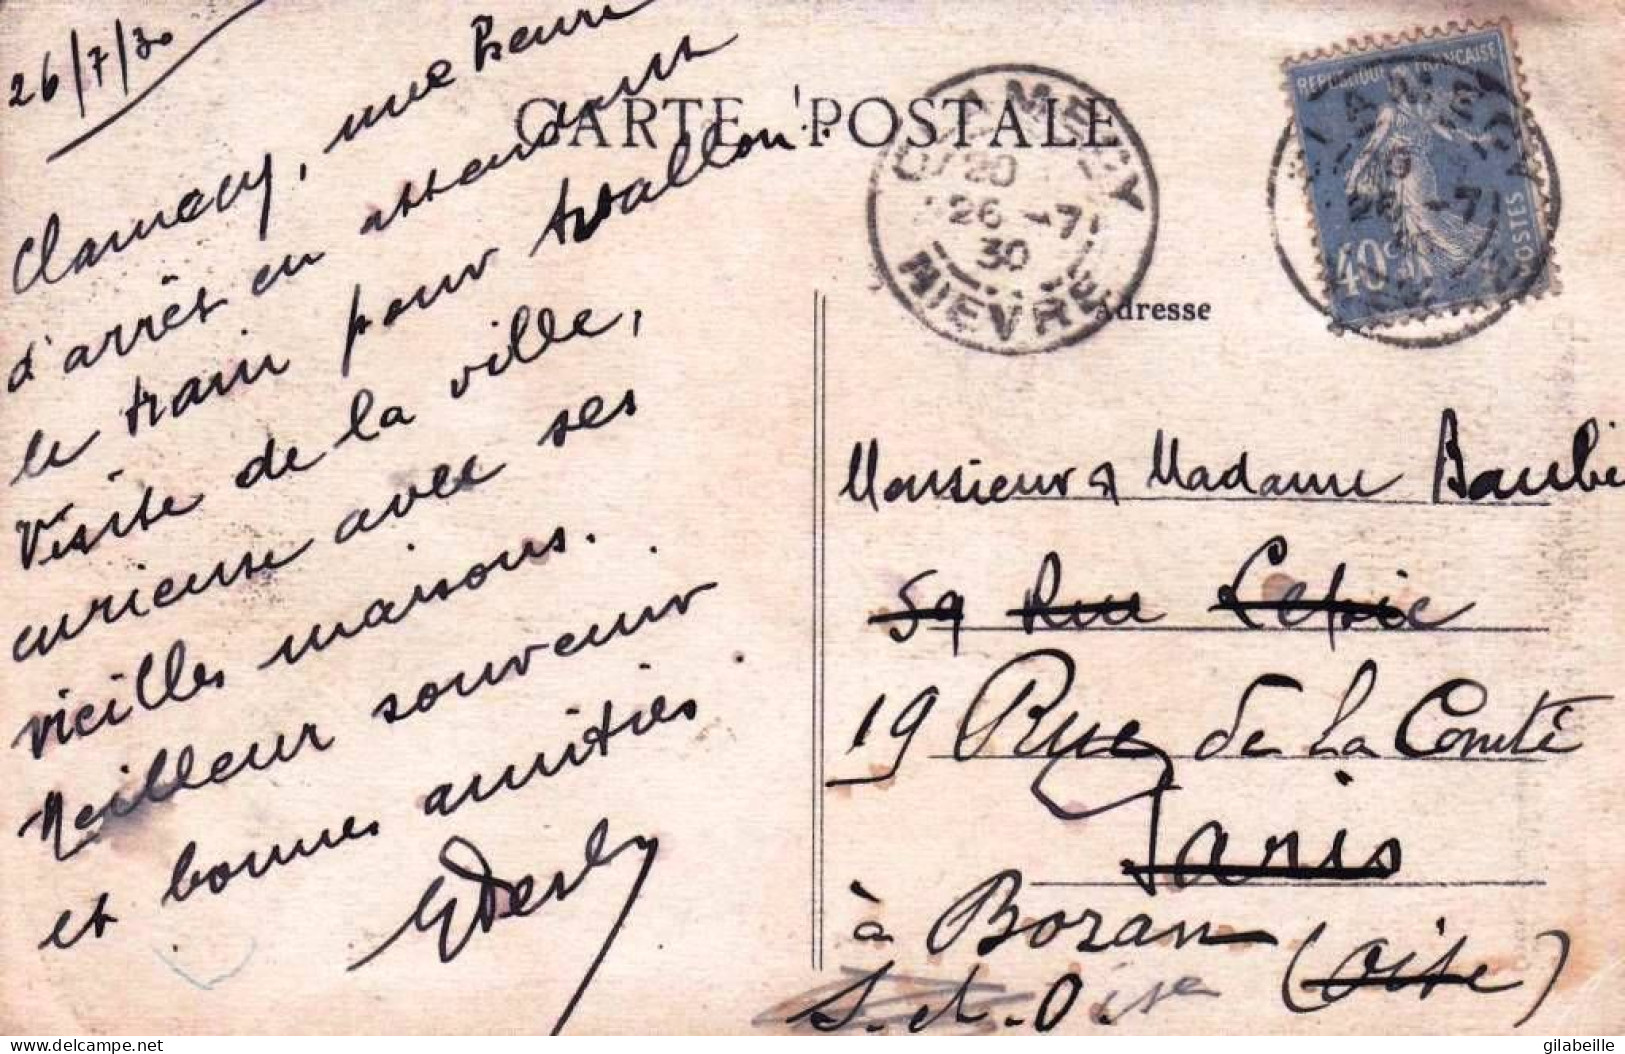 26/7/30
CARTE POSTALE
Clamecy, une heure
d'arrêt en attendant
le train pour Avallon.
Visite de la ville,
curieuse avec ses
vieilles maisons.
Meilleur souvenir
et bonnes amitiés
CLAMECY
20
26 - 7
30
NIEVRE
REPUBLIQUE FRANÇAISE
40c
POSTES
Adresse
Monsieur & Madame
59 Rue Lepic
19 Rue de la Comté
Paris
à Boran (Oise)
S.-et-Oise
gilabeille